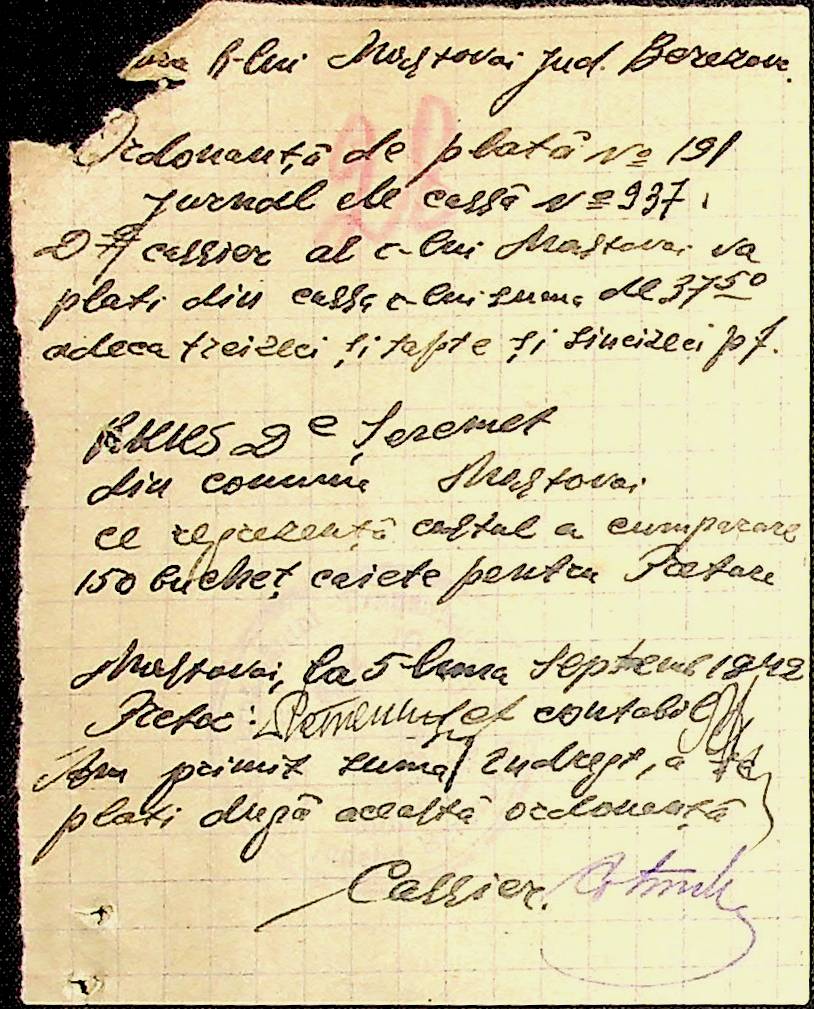 R-lui Mastovai jud. Berezov.
28
Ordonanță de plată № 191
jurnal de cassă № 937.
D-l cassier al c-lui Mastovai va
plati din cassa c-lui suma de 37 50
adeca treizeci și șapte și sincizeci pf.
D e Șeremet
din comuna Mastovai
ce reprezentă costul a cumparare
150 buchet caiete pentru Pretura
Mastovai, la 5 luna Septemb 1942
Pretor: Șef contabil
Am primit suma indrept, a se
plati după această ordonanță
Cassier.